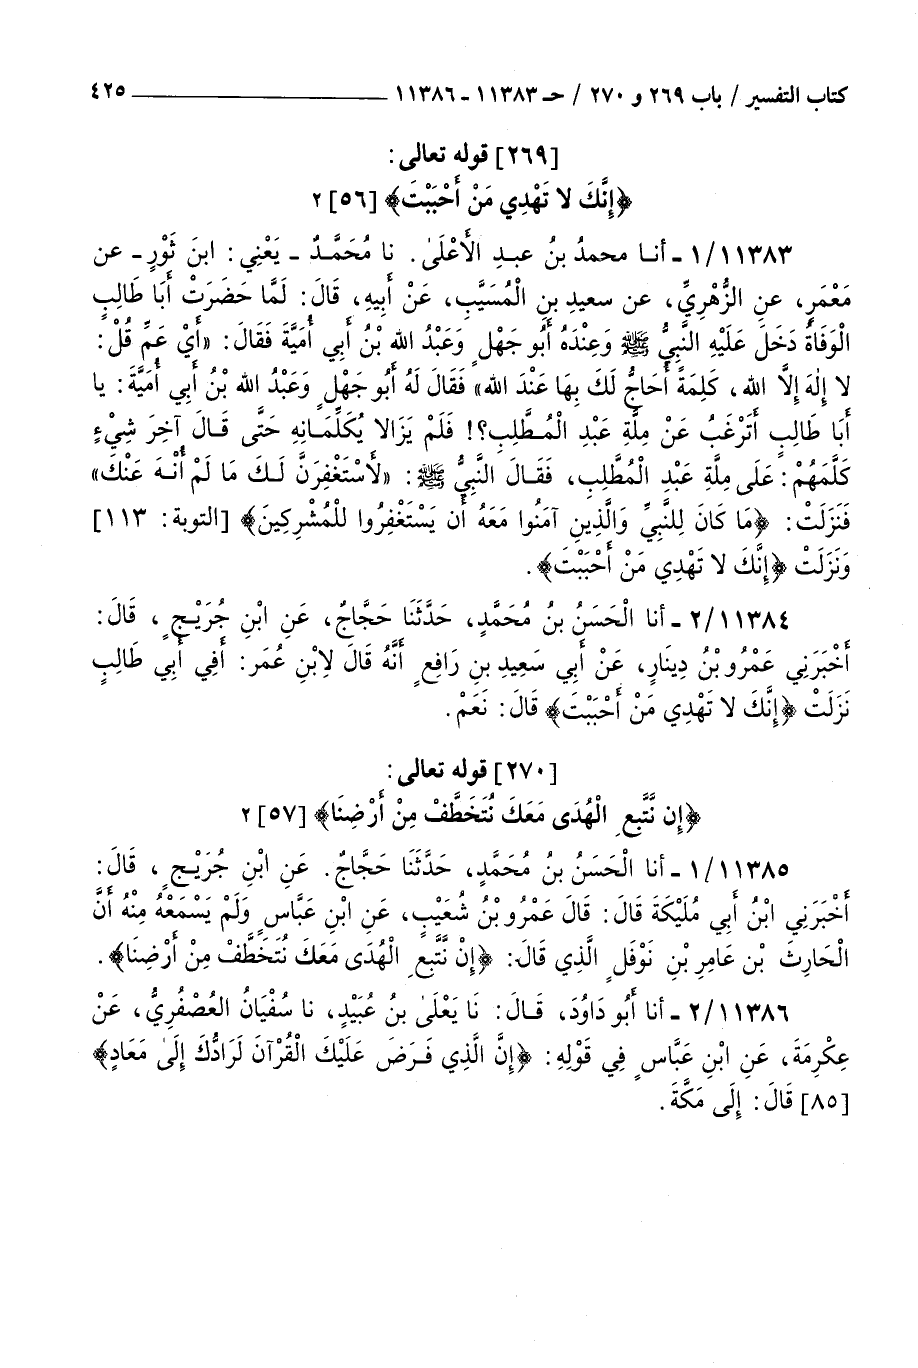 كتاب التفسير / باب ٢٦٩ و ٢٧٠ / حـ ١١٣٨٣ - ١١٣٨٦ ٤٢٥
[٢٦٩] قوله تعالى:
﴿إِنَّكَ لا تَهْدِي مَنْ أَحْبَبْتَ﴾ [٥٦] ٢
١/١١٣٨٣ - أنـا محمدُ بنُ عبـدِ الأَعْلَىٰ. نا مُحَمَّـدٌ - يَعْنِي: ابنَ ثَوْرٍ - عن
مَعْمَرٍ، عنِ الزُّهْرِيِّ، عن سعيدِ بنِ الْمُسَيَّبِ، عَنْ أَبِيهِ، قَالَ: لَمَّا حَضَرَتْ أَبَا طَالِبٍ
الْوَفَاةُ دَخَلَ عَلَيْهِ النَّبِيُّ ﷺ وَعِنْدَهُ أَبُو جَهْلٍ وَعَبْدُ الله بْنُ أَبِي أُمَيَّةَ فَقَالَ: «أَيْ عَمِّ قُلْ:
لا إِلٰهَ إلاَّ الله، كَلِمَةً أُحَاجُّ لَكَ بِهَا عَنْدَ الله» فَقَالَ لَهُ أَبُو جَهْلٍ وَعَبْدُ الله بْنُ أَبِي أُمَيَّةَ: يا
أَبَا طَالِبٍ أَتَرْغَبُ عَنْ مِلَّةِ عَبْدِ الْمُـطَّلِبِ؟! فَلَمْ يَزَالا يُكَلِّمَـانِهِ حَتَّى قَـالَ آخِرَ شِيْءٍ
كَلَّمَهُمْ: عَلَى مِلَّةِ عَبْدِ الْمُطَّلِبِ، فَقَـالَ النَّبِيُّ ﷺ: «لأَسْتَغْفِرَنَّ لَـكَ مَا لَمْ أُنْـهَ عَنْكَ»
فَنَزَلَتْ: ﴿مَا كَانَ لِلنَّبِيِّ وَالَّذِينِ آمَنُوا مَعَهُ أَن يَسْتَغْفِرُوا لِلْمُشْرِكِينَ﴾ [التوبة: ١١٣]
وَنَزَلَتْ ﴿إِنَّكَ لا تَهْدِي مَنْ أَحْبَبْتَ﴾.
٢/١١٣٨٤ - أنا الْحَسَنُ بنُ مُحَمَّدٍ، حَدَّثَنَا حَجَّاجٌ، عَنِ ابْنِ جُرَيْـجٍ، قَالَ:
أَخْبَرَنِي عَمْرُو بْنُ دِينَارٍ، عَنْ أَبِي سَعِيدِ بنِ رَافِعٍ أَنَّهُ قَالَ لاِبْنِ عُمَرَ: أَفِي أَبِي طَالِبٍ
نَزَلَتْ ﴿إِنَّكَ لا تَهْدِي مَنْ أَحْبَبْتَ﴾ قَالَ: نَعَمْ.
[٢٧٠] قوله تعالى:
﴿إِن نَّتَّبِعِ الْهُدَى مَعَكَ نُتَخَطَّفْ مِنْ أَرْضِنَا﴾ [٥٧] ٢
١/١١٣٨٥ - أنا الْحَسَنُ بنُ مُحَمَّدٍ، حَدَّثَنَا حَجَّاجٌ. عَنِ ابْنِ جُرَيْـجٍ، قَالَ:
أَخْبَرَنِي ابْنُ أَبِي مُلَيْكَةَ قَالَ: قَالَ عَمْرُو بْنُ شُعَيْبٍ، عَنِ ابْنِ عَبَّاسٍ وَلَمْ يَسْمَعْهُ مِنْهُ أَنَّ
الْحَارِثَ بْن عَامِرِ بْنِ نَوْفَلٍ الَّذِي قَالَ: ﴿إِنْ نَّتَّبِعِ الْهُدَى مَعَكَ نُتَخَطَّفْ مِنْ أَرْضِنَا﴾.
٢/١١٣٨٦ - أنا أَبُو دَاوُدَ، قَـالَ: نَا يَعْلَىٰ بنُ عُبَيْدٍ، نا سُفْيَانُ العُصْفُرِيُّ، عَنْ
عِكْرِمَةَ، عَنِ ابْنِ عَبَّاسٍ فِي قَوْلِهِ: ﴿إِنَّ الَّذِي فَـرَضَ عَلَيْكَ الْقُرْآنَ لَرَادُّكَ إِلَىٰ مَعَادٍ﴾
[٨٥] قَالَ: إِلَى مَكَّةَ.